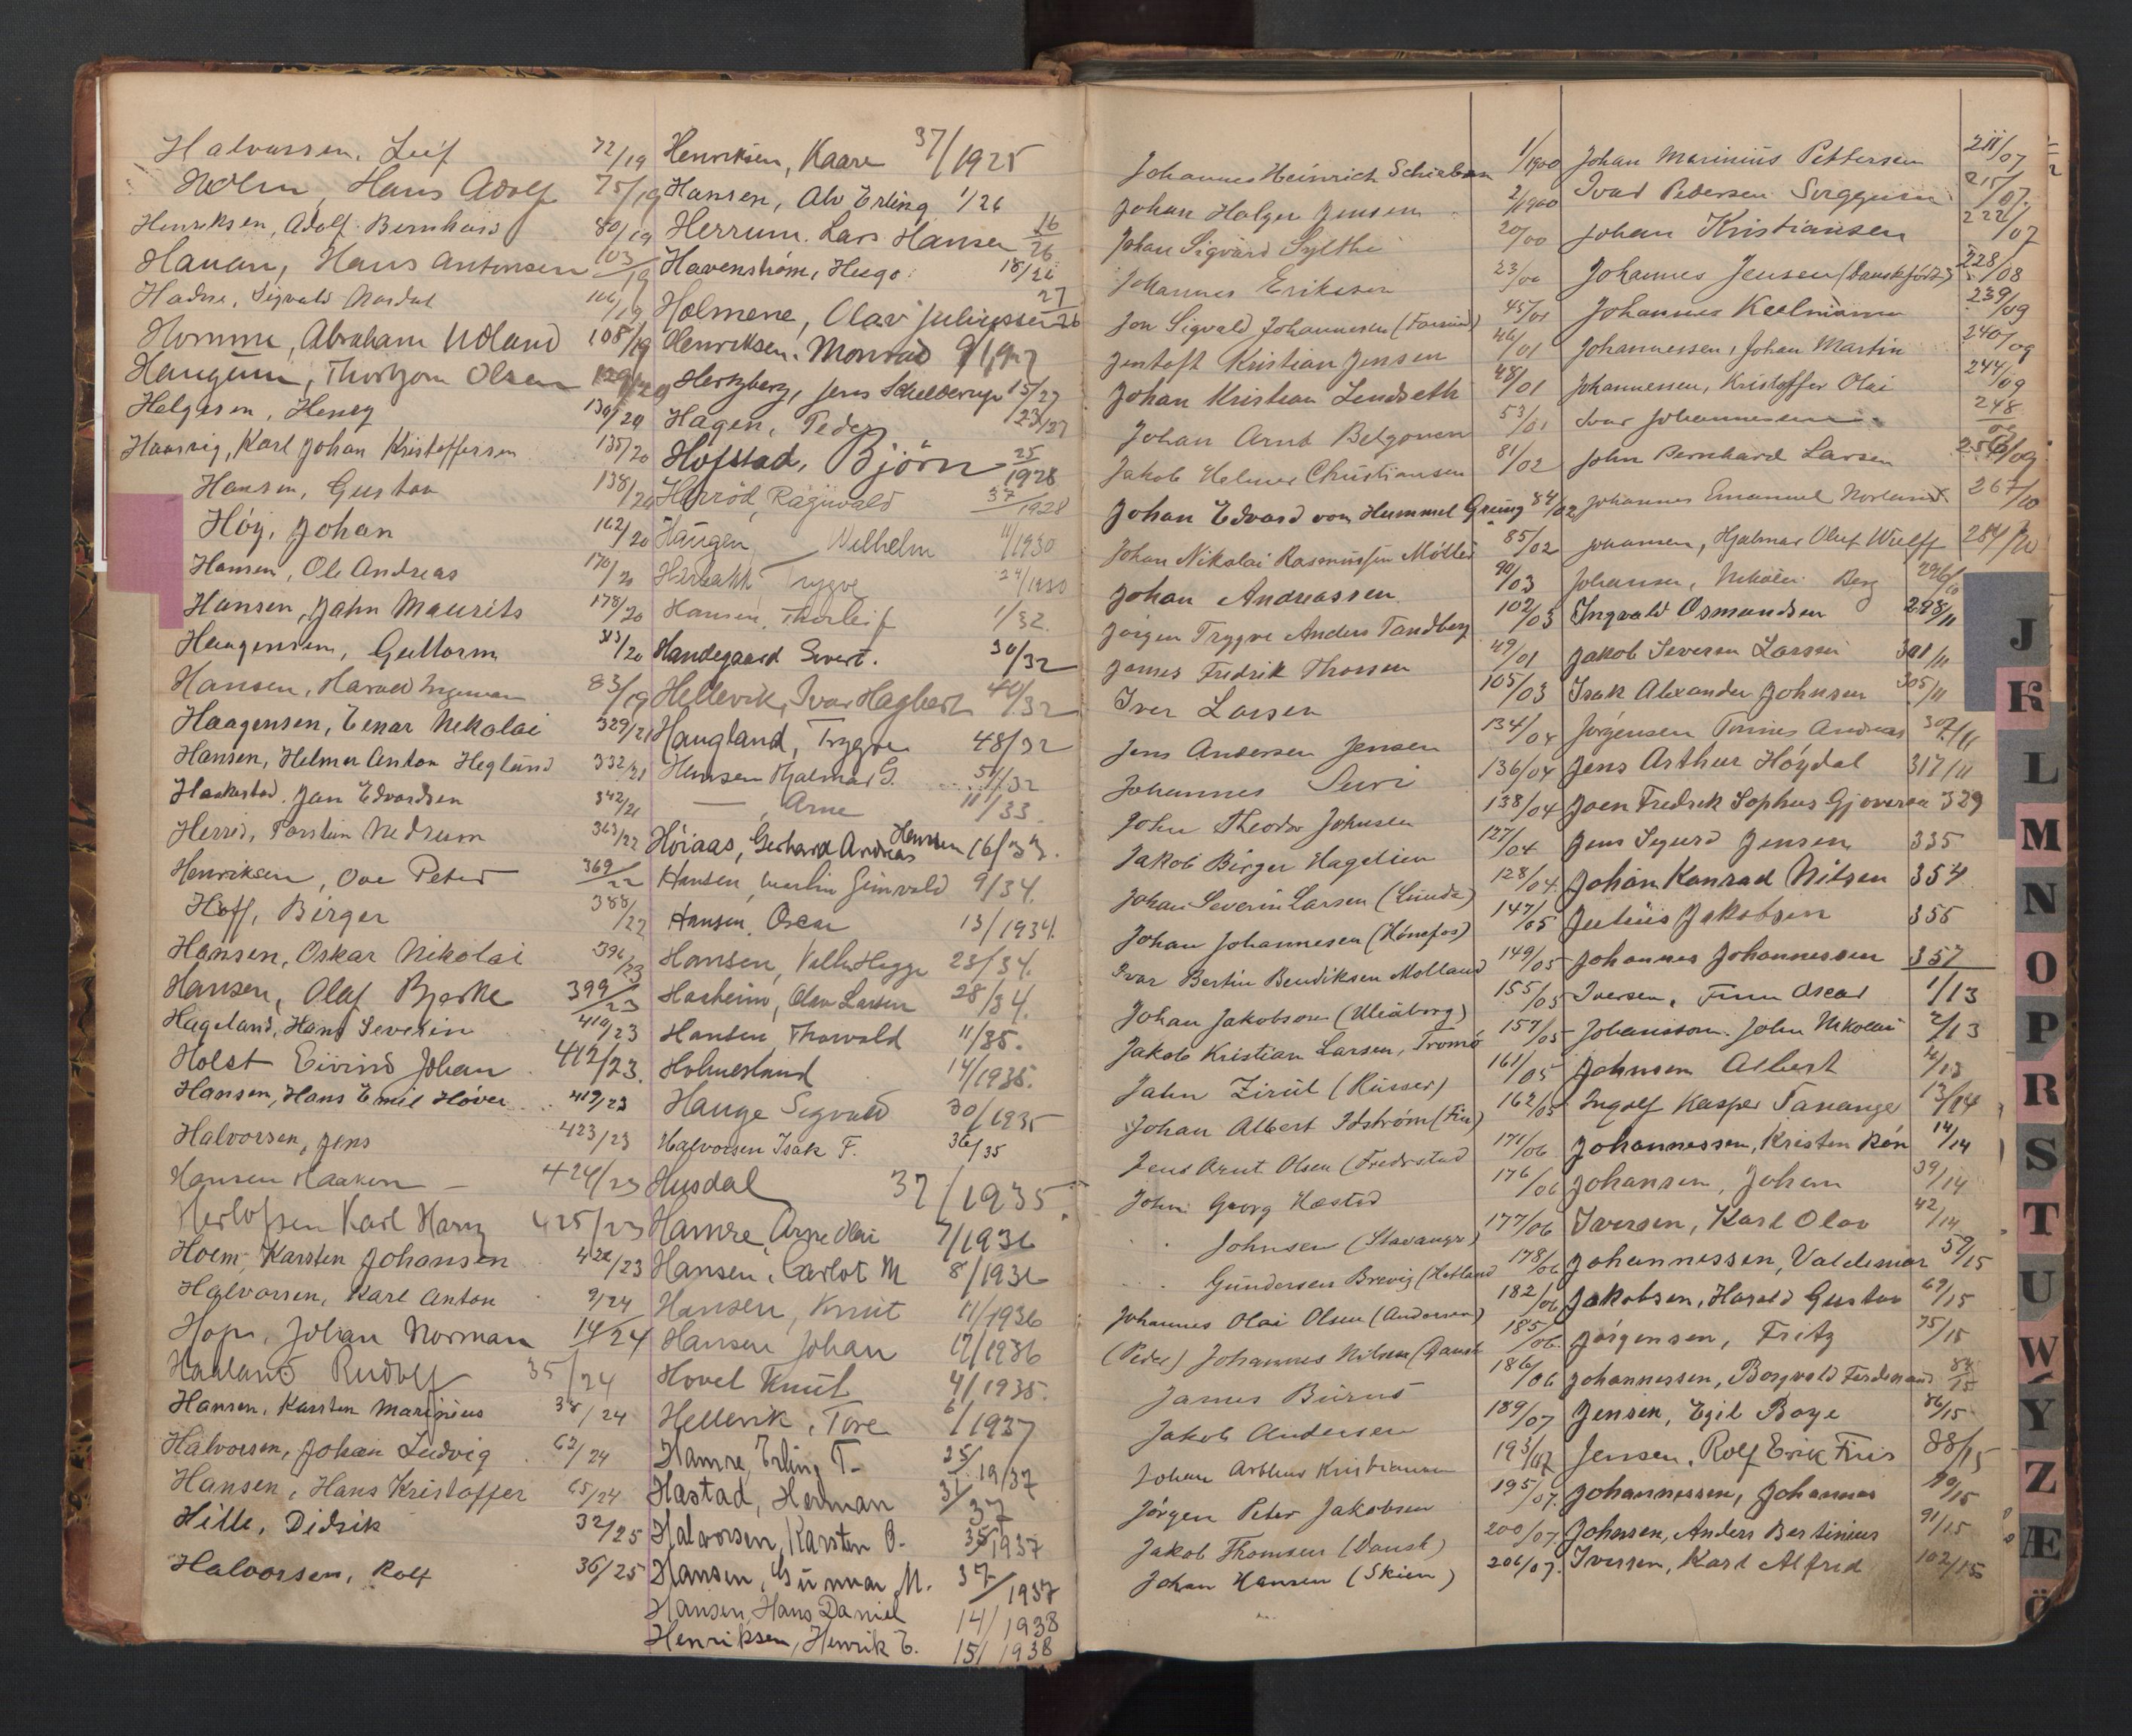 Halvorsen, Leif 72/19
Holm, Hans Adolf 75/19
Henriksen, Adolf Bernhard 80/19
Hauan, Hans Antonsen 103/19
Sigvald 106/19
Homme, Abraham Udland 108/19
Haugum, Olsen
Helgesen, Henry 130/20
Haarvig, Karl Johan Kristoffersen 135/20
Hansen, Gustav 138/20
Höy, Johan 162/20
Hansen, Ole Andreas 170/20
Hansen, Jahn Maurits 178/20
Haagensen, Guttorm 313/20
Hansen, Harald Ingeman 83/19
Haagensen, Einar Nikolai 329/21
Hansen, Helmer Anton Heglund 332/21
Haakestad, Jan Edvardsen 342/21
Torstein Nedrum 363/22
Henriksen, Ove Peter 369/22
Hoff, Birger 388/22
Hansen, Oskar Nikolai 396/23
Hansen, Olaf Bjerke 399/23
Hageland, Hans Severin 410/23
Holst Eivind Johan 412/23.
Hansen, Hans Emil Höver 419/23
Halvorsen, Jens 423/23
Hansen Haaken — 424/23
Herlofsen Karl Harry 425/23
Holm, Karsten Johansen 428/23
Halvorsen, Karl Anton 9/24
Hope, Johan Norman 14/24
Haaland Rudolf 35/24
Hansen, Karsten Marinius 38/24
Halvorsen, Johan Ludvig 62/24
Hansen, Hans Kristoffer 65/24
Hille, Didrik 32/25
Halvorsen, Rolf 36/25
Henriksen, Kaare 37/1925
Hansen, Alv Erling 1/26
Herrum. Lars Hansen 16/26
Havenström, Hugo 18/26
Holmene, Olav Juliussen 27/26
Henriksen, Monrad 9/1927
Hertzberg, Jens Schelderup 15/27
Hagen, Peder 23/27
Hofstad, Björn 25/1928
Herröd, Ragnvald 37/1928
Haugen, Vilhelm 11/1930
Trygve 24/1930
Hansen, Thorleif 1/32.
Handegaard Sivert. 30/32
Hellevik, Ivar Hagbert 40/32
Haugland, Trygve 48/32
Hansen Hjalmar G. 51/32
— , Arne 11/33.
Höiaas, Gerhard Andreas Hansen 16/33.
Hansen, Martin Gunvald 9/34.
Hansen, Oscar 13/1934.
Hansen, Hegge 23/34.
Hasheim, Olav Larsen 28/34.
Hansen, Thorvald 11/35.
Holmesland 14/1935.
Hauge Sigvald 30/1935
Halvorsen Isak F. 36/35
Husdal 37/1935.
Hamre, Arne Olai 7/1936
Hansen, Carlot M 8/1936
Hansen, Knut 11/1936
Hansen Johan 17/1936
Hovet Knut 4/1935.
Hellevik, Tore 6/1937
Hamre, Erling T. 25/1937
Hastad, Herman 31/37
Halvorsen, Karsten O. 35/1937
Hansen, Gunnar M. 37/1937
Hansen, Hans Daniel 14/1938
Henriksen, Henrik E. 15/1938
Johannes Heinrich 1/1900
Johan Holger Jensen 2/1900
Johan Sigvard Sylthe 20/00
Johannes Eriksen 23/00
Jon Sigvald Johannesen (Farsund) 45/01
Jentoft Kristian Jensen 46/01
Johan Kristian Lindseth 48/01
Johan Arnt Belgonen 53/01
Jakob Helmer Christiansen 81/02
Johan Edvard von Hummel Grung 84/02
Johan Nikolai Rasmussen Möller 85/02
Johan Andreassen 90/03
Jörgen Trygve Anders Tandberg 102/03
James Fredrik Thorsen 49/01
Iver Larsen 105/03
Jens Andersen Jensen 134/04
Johannes 136/04
John Theodor Johnsen 138/04
Jakob Birger Hagelien 127/04
Johan Severin Larsen (Lunde) 128/04.
Johan Johannesen (Hönefos) 147/05
Ivar Bertin Bendiksen Molland 149/05
Johan Jakobsson (Uleåborg) 155/05
Jakob Kristian Larsen, Tromö 157/05
Jahn Zirul (Russer) 161/05
Johan Albert Idström (Fin) 162/05
Jens Arnt Olsen (Fredrstad 171/06
John Georg Hasted 176/06
Johnsen (Stavanger) 177/06
Gundersen Brevig (Hetland 178/06
Johannes Olai Olsen (Andersen) 182/06
(Peder) Johannes Nilsen (Dansk 185/06.
James Burns 186/06
Jakob Andersen 189/07
Johan Arthur Kristiansen 193/07
Jörgen Peter Jakobsen 195/07.
Jakob Thomsen (Dansk) 200/07
Johan Hansen (Skien) 206/07.
Johan Marinius Pettersen 211/07
Ivar Pedersen 215/07.
Johan Kristiansen 222/07
Johannes Jensen (Dansk född) 228/08
Johannes Keelmann 239/09
Johannessen, Johan Martin 240/09
Johannessen, Kristoffer Olai 244/09
Ivar Johannesen 248/09
John Bernhard Larsen 256/09
Johannes Emanuel Norland 267/10
Johansen, Hjalmar Oluf Wulff 284/10
Johansen, Nikolai Berg 296/10
Ingvald Osmundsen 298/11
Jakob Severin Larsen 301/11
Isak Alexander Johnsen 305/11
Jörgensen Tönnes Andreas 307/11
Jens Arthur Höydal 317/11
Joen Fredrik Sophus Gjöversen 329
Jens Sigurd Jensen 335
Johan Konrad Nilsen 354
Julius Jakobsen 355
Johannes Johannessen 357
Iversen, Finn Oscar 1/13
Johansson, John Nikolai 2/13
Johnsen Albert 4/13
Ingolf Kasper Tananger 13/14
Johannessen, Kristen Rön 14/14
Johansen, Johan 39/14
Iversen, Karl Olav 42/14
Johannessen, Valdemar 59/15
Jakobsen, Harald Gustav 69/15
Jörgensen, Fritz 75/15
Johannessen, Borgvald Ferdinand 84/15
Jensen, Egil Boye 86/15
Jensen, Rolf Erik Friis 88/15
Johannessen, Johannes 90/15
Johnsen, Anders Bertinius 91/15
Iversen, Karl Alfred 102/15
J
K
L
M
N
O
P
R
S
T
U
W
Y
Z
Æ
Ö